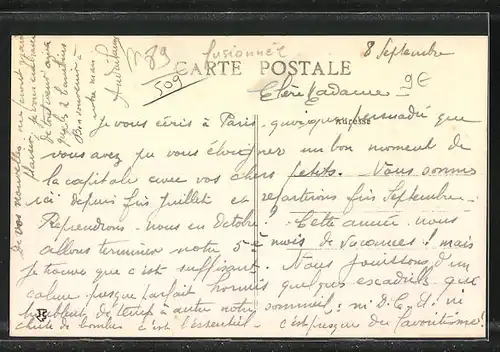 8 Septembre
n° 89
fusionnée
509
9€
CARTE POSTALE
Chère Madame
Adresse
Je vous écris à Paris quoique persuadé que
vous avez pu vous éloigner un bon moment de
la capitale avec vos chers petits. Nous sommes
ici depuis fin juillet et repartirons fin Septembre.
Reprendrons nous en Octobre? Cette année nous
allons terminer notre 5è mois de vacances! mais
je trouve que c'est suffisant. Nous jouissons d'un
calme presque parfait hormis quelques escadrilles qui
troublent de temps à autre notre sommeil: ni D.C.A! ni
chute de bombes c'est l'essentiel - c'est presque du favoritisme!
De vos nouvelles me feront grand
plaisir. Je vous embrasse
de tout cœur ayez
à
Bon souvenir à
votre mari